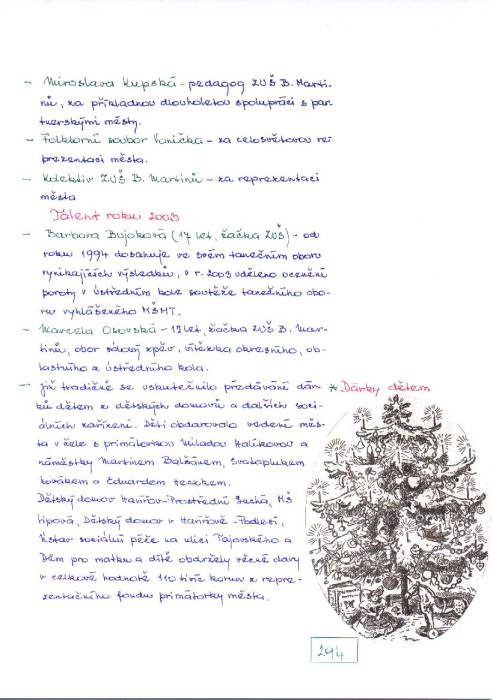 - Miroslava Kupská - pedagog ZUŠ B. Marti-
nů, za příkladnou dlouholetou spolupráci s par-
tnerskými městy.
- Folklorní soubor Vonička - za celosvětovou re-
prezentaci města.
- Kolektiv ZUŠ B. Martinů - za reprezentaci
města
Talent roku 2003
- Barbora Bujoková (17 let, žačka ZUŠ) - od
roku 1994 dosahuje ve svém tanečním oboru
vynikajících výsledků, v r. 2003 uděleno ocenění
poroty v ústředním kole soutěže tanečního obo-
ru vyhlášeného MŠMT.
- Marcela Osovská - 17 let, žačka ZUŠ B. Mar-
tinů, obor sólový zpěv, vítězka okresního, ob-
lastního a ústředního kola.
- Již tradičně se uskutečnilo předávání dár- * Dárky dětem
ků dětem z dětských domovů a dalších soci-
álních zařízení. Děti obdarovalo vedení měs-
ta v čele s primátorkou Miladou Halíkovou a
náměstky Martinem Balšánem, Svatoplukem
Novákem a Eduardem Heczkem.
Dětský domov Havířov-Prostřední Suchá, MŠ
Lipová, Dětský domov v Havířově - Podlesí,
Ústav sociální péče na ulici Tajovského a
Dům pro matku a dítě obdržely věcné dary
v celkové hodnotě 110 tisíc korun z repre-
zentačního fondu primátorky města.
294